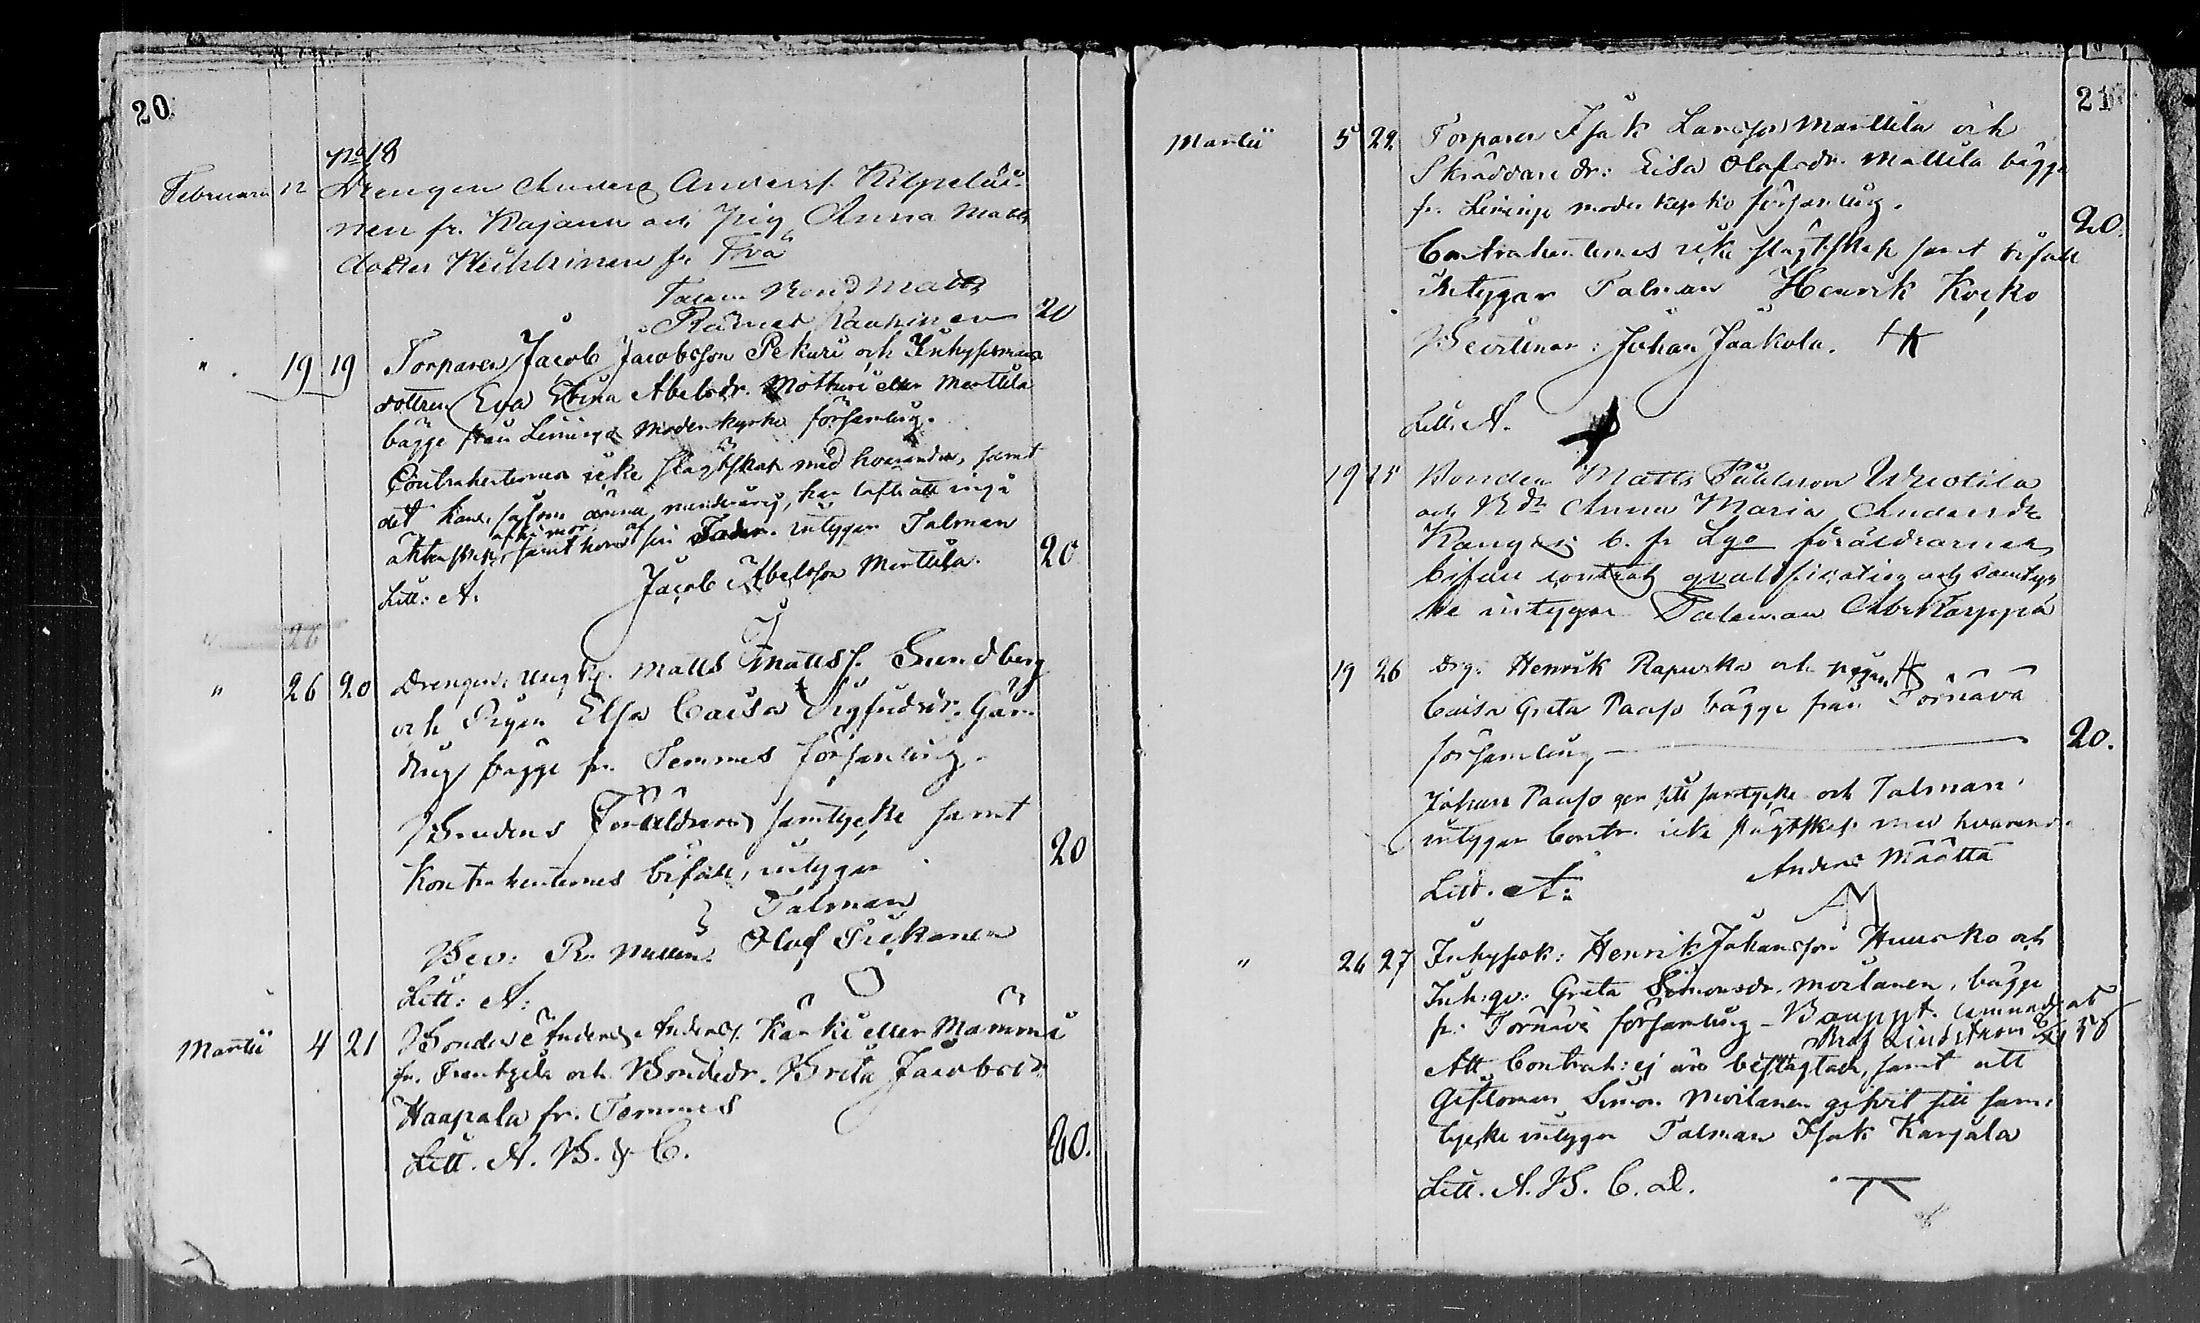 20
No 18
Februari 12 Drengen Anders Anderss. Kilpeläi-
nen fr. Kajana och Pig. Anna Matts
dotter Heikkinen fr.
Talman Bond Matts
20
" 19 19 Torparen Jacob Jacobsson Pekuri och Inhysesmans
dottren Eva Stina Abelsdr. eller Merttila
bägge från Liminga Moderkyrko församling.
Contrahenternas icke slägtskap med hvarandra, samt
det hon, såsom minderårig, har lofts att ingå
äktenskap samt af sin Fader. intygar Talman
20
Litt: A. Jacob Abelsson Merttila.
26
" 26 20 Drengen, Matts Mattss. Sundberg
och Pigan Elsa Caisa Sigfridsdr.
bägge fr. Temmes församling.
Brudens Föräldrars samtycke samt
Kontrahenternes bifall, intygar
20
Talman
Bev: R. Olof Piekonen
Litt: A:
Martii 4 21 Bonden Anders Anderss. Kärki eller Mämmi
fr. Frantzila och Bondedr. Brita Jacobsdr.
Haapala fr. Temmes
Litt. A. B. & C.
20.
21
Martii 5 22 Torparen Isak Larsson Marttila och
Skräddare dr: Lisa Olofsdr. Mattila bägge
fr. Liminga moderkyrko församling.
20.
Contrahenternes icke slägtskap samt bifall
intygar Talman Henrik Koçko
Bevittnar: Johan Jaakola.
Litt. A.
19 25 Bonden Matts
och Bdr Anna Maria Andersdr
Kangas b. fr. Lgo föräldrarnes
bifall contrah qvalification och samtyc
ke intygar Talman Abel Torppa
19 26 Drg. Henrik Rapusko och pigan
Caisa Greta Paaso bägge från Törnävä
församling
20.
Johan Paaso ger sitt samtycke och Talman
intygar Contr. icke slägtskap med hvarand.
Anders Määttä
Litt. A:
" 26 27 Inhysok: Henrik Johansson Huusko och
Inh:qv: Greta Simonsdr. Moilanen, bägge
fr. Törnävä församling - af
Lindström
Att Contrah: ej äro beslägtade, samt att
Giftoman Simon Moilanen gifvit sitt sam-
tycke intygar Talman Isak Karjala
Litt. A. B. C. D.